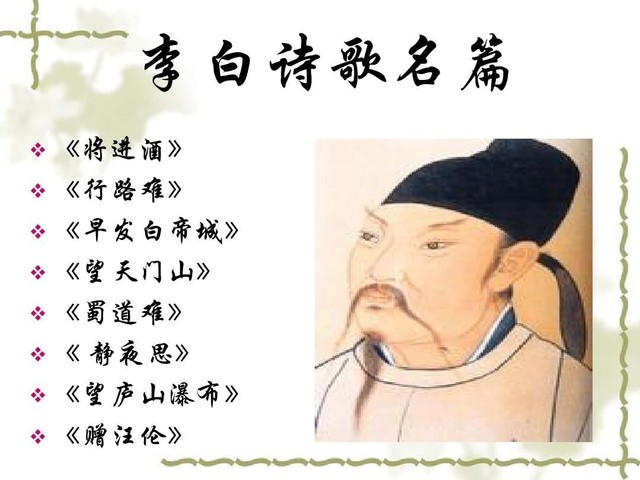 李白诗歌名篇
《将进酒》
《行路难》
《早发白帝城》
《望天门山》
《蜀道难》
《静夜思》
《望庐山瀑布》
《赠汪伦》